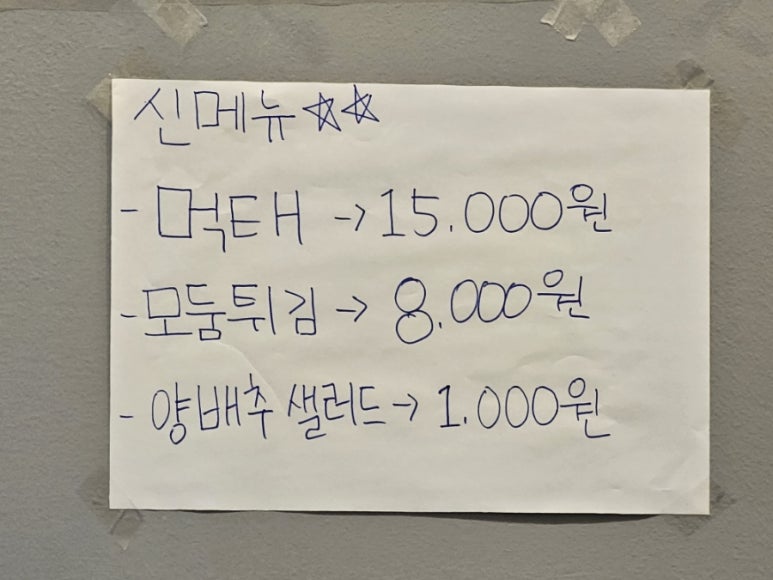 신메뉴 ☆☆
- 먹태 → 15.000원
- 모둠튀김 → 8.000원
- 양배추 샐러드 → 1.000원